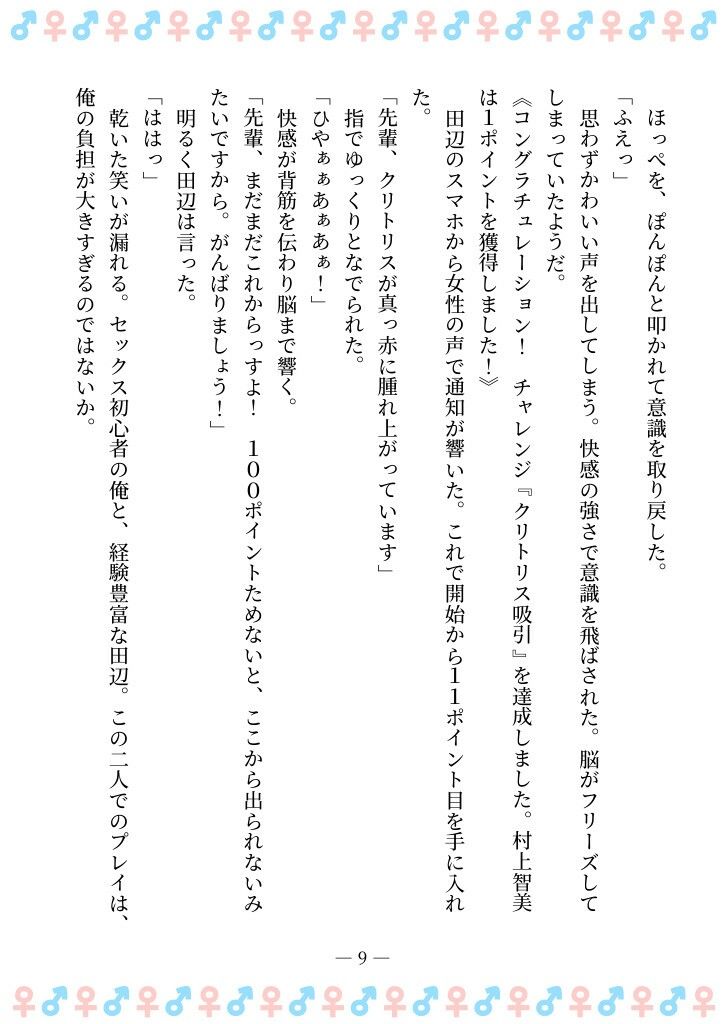 ほっぺを、ぽんぽんと叩かれて意識を取り戻した。
「ふえっ」
思わずかわいい声を出してしまう。快感の強さで意識を飛ばされた。脳がフリーズして
しまっていたようだ。
《コングラチュレーション！　チャレンジ『クリトリス吸引』を達成しました。村上智美
は１ポイントを獲得しました！》
田辺のスマホから女性の声で通知が響いた。これで開始から１１ポイント目を手に入れ
た。
「先輩、クリトリスが真っ赤に腫れ上がっています」
指でゆっくりとなでられた。
「ひやぁぁあぁあぁ！」
快感が背筋を伝わり脳まで響く。
「先輩、まだまだこれからっすよ！　１００ポイントためないと、ここから出られないみ
たいですから。がんばりましょう！」
明るく田辺は言った。
「ははっ」
乾いた笑いが漏れる。セックス初心者の俺と、経験豊富な田辺。この二人でのプレイは、
俺の負担が大きすぎるのではないか。
— 9 —